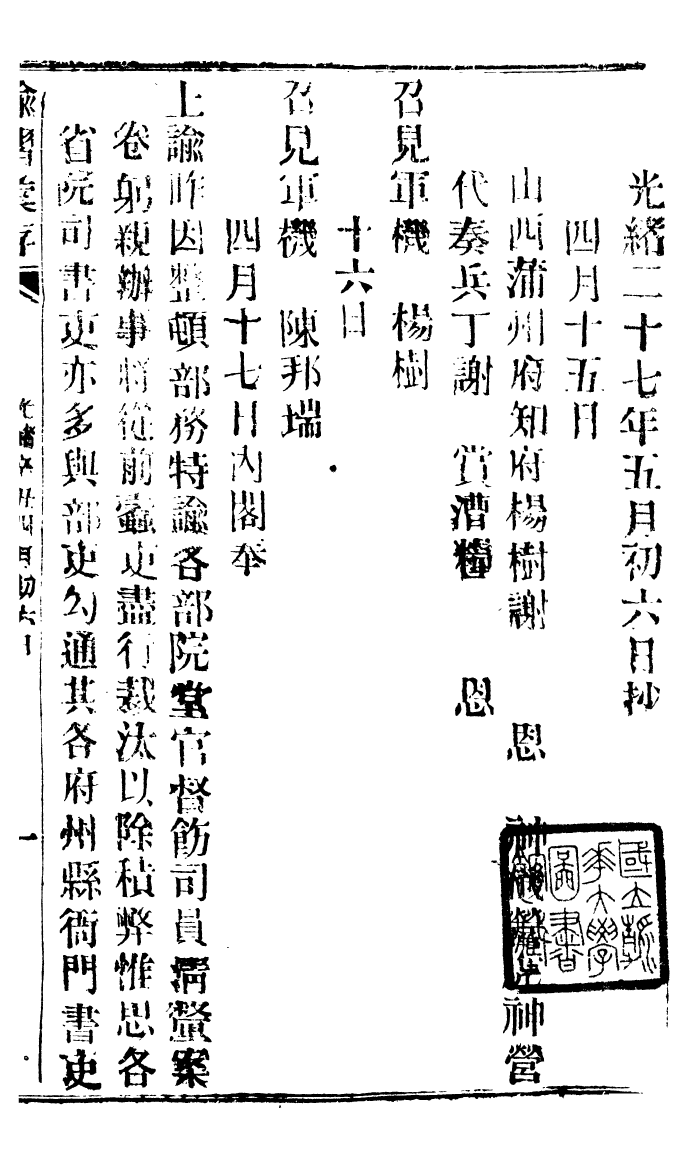 光緒二十七年五月初六日抄
四月十五日
山西蒲州府知府楊樹謝 恩 神機營 神營
代奏兵丁謝 賞漕糧 恩
召見軍機 楊樹
十六日
召見軍機 陳邦瑞
四月十七日內閣奉
上諭昨因整頓部務特諭各部院堂官督飭司員清釐案
卷躬親辦事將從前蠹吏盡行裁汰以除積弊惟思各
省院司書吏亦多與部吏勾通其各府州縣衙門書吏
諭摺彙存
光緒辛丑四月初六日
一
國立清華大學
圖書